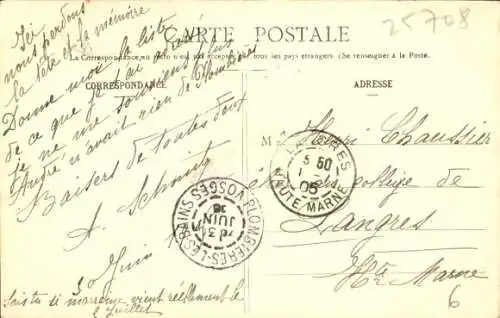 25708
CARTE POSTALE
La Correspondance au recto n'est pas acceptée par tous les pays étrangers (Se renseigner à la Poste.
CORRESPONDANCE
ADRESSE
Ici
nous perdons
la tête et la mémoire
Donne moi la liste
de ce que je t'ai
je ne me souviens plus
André n'avait rien de Plombières
Baisers de toutes deux
A. Schmitz
30 Juin
sais tu si marraine vient réellement le
2 Juillet
M Henri Chaussier
collège de
Langres
Hte Marne
6
LANGRES
5 50
05
HAUTE-MARNE
PLOMBIERES-LES-BAINS VOSGES
JUIN